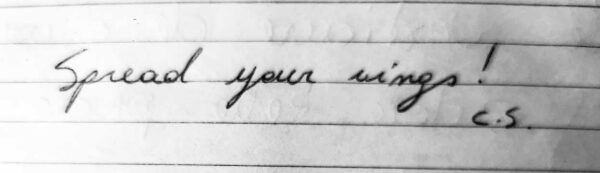 Spread your wings!
C.S.